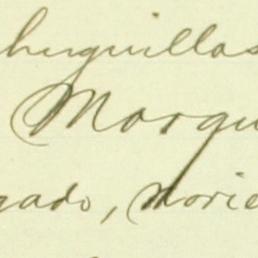 huguillas
Marqu
gado, Norie